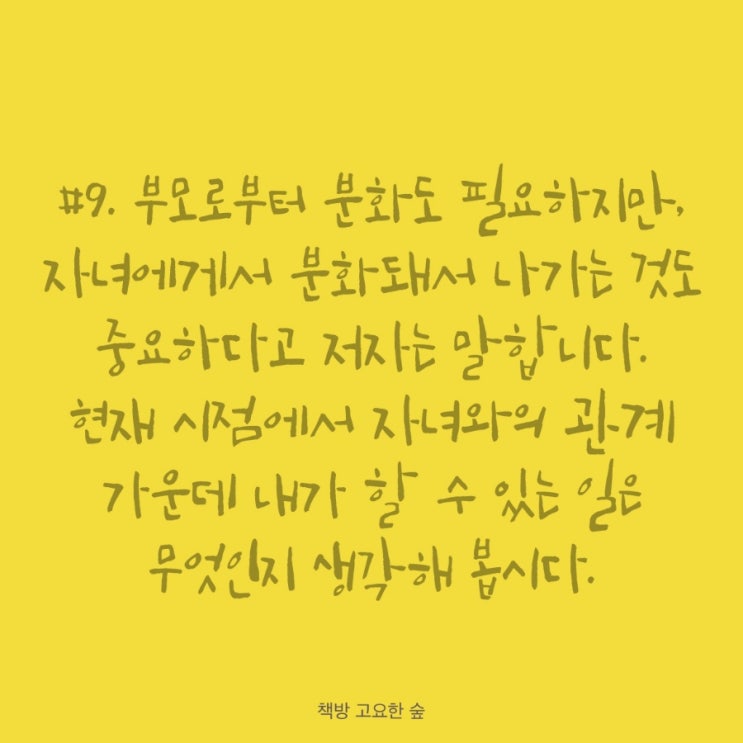 #9. 부모로부터 분화도 필요하지만,
자녀에게서 분화돼서 나가는 것도
중요하다고 저자는 말합니다.
현재 시점에서 자녀와의 관계
가운데 내가 할 수 있는 일은
무엇인지 생각해 봅시다.
책방 고요한 숲